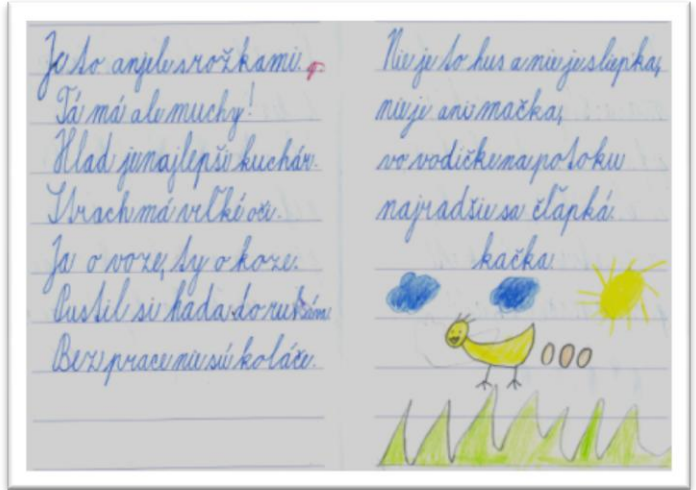 Je to anjel s rožkami.
Tá má ale muchy!
Hlad je najlepší kuchár.
Strach má veľké oči.
Ja o voze, ty o koze.
Pustil si hada do
Bez prace nie sú koláče.
Nie je to hus a nie je sliepka,
nie je ani mačka,
vo vodičke na potoku
najradšie sa čľapká.
kačka